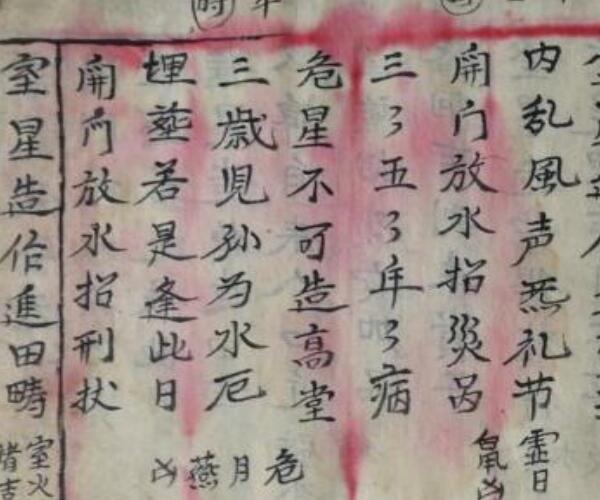 時
内乱風声无礼节
虚日鼠凶
開门放水招災㕦
三〻五〻年〻病
危星不可造高堂
危月燕凶
三歲児孙为水厄
埋塟若是逢此日
開门放水招刑状
室星造作進田疇
室火猪吉